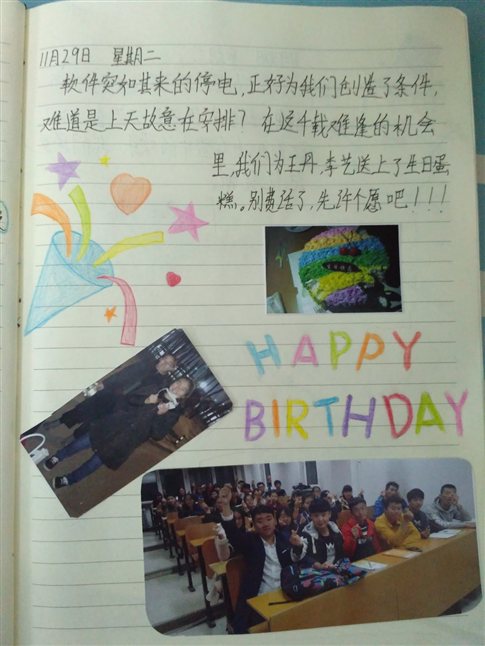 11月29日 星期二
软件突如其来的停电,正好为我们创造了条件,
难道是上天故意在安排? 在这千载难逢的机会
里,我们为王丹,李艺送上了生日蛋
糕。别费话了,先许个愿吧!!!
HAPPY
BIRTHDAY